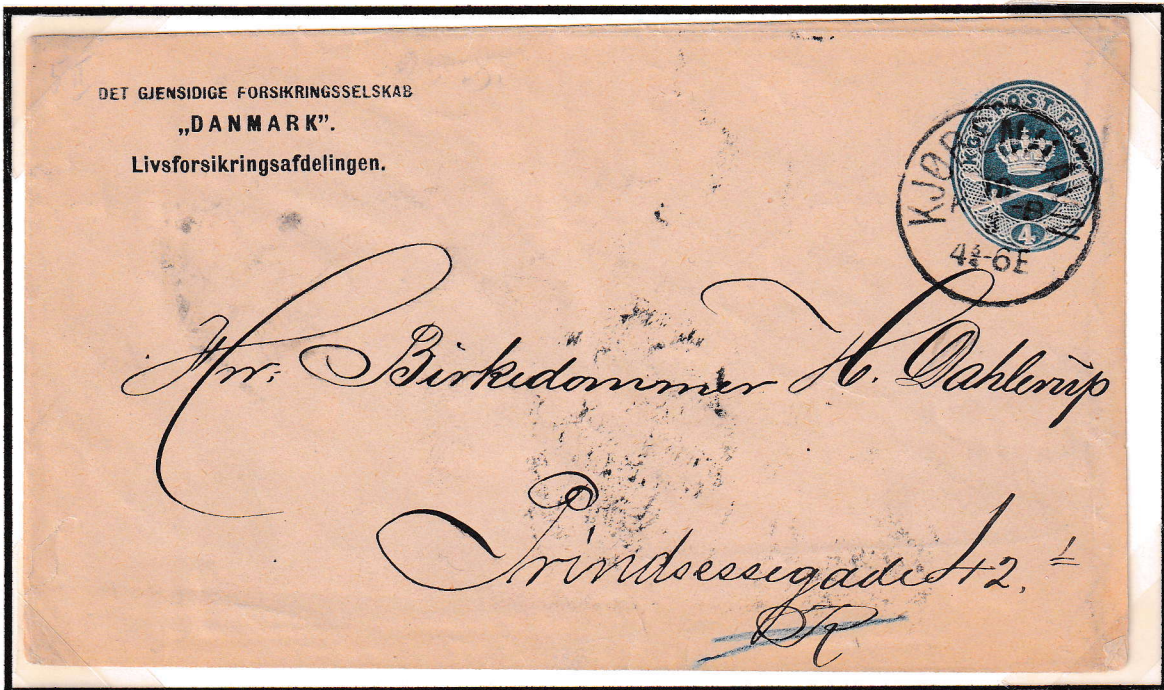 DET GJENSIDIGE FORSIKRINGSSELSKAB
„DANMARK".
Livsforsikringsafdelingen.
KGL POST FRM
4
KJØBENHAVN
4¾-6E
Hr. Birkedommer H. Dahlerup
Prindsessegade 42. 1
K